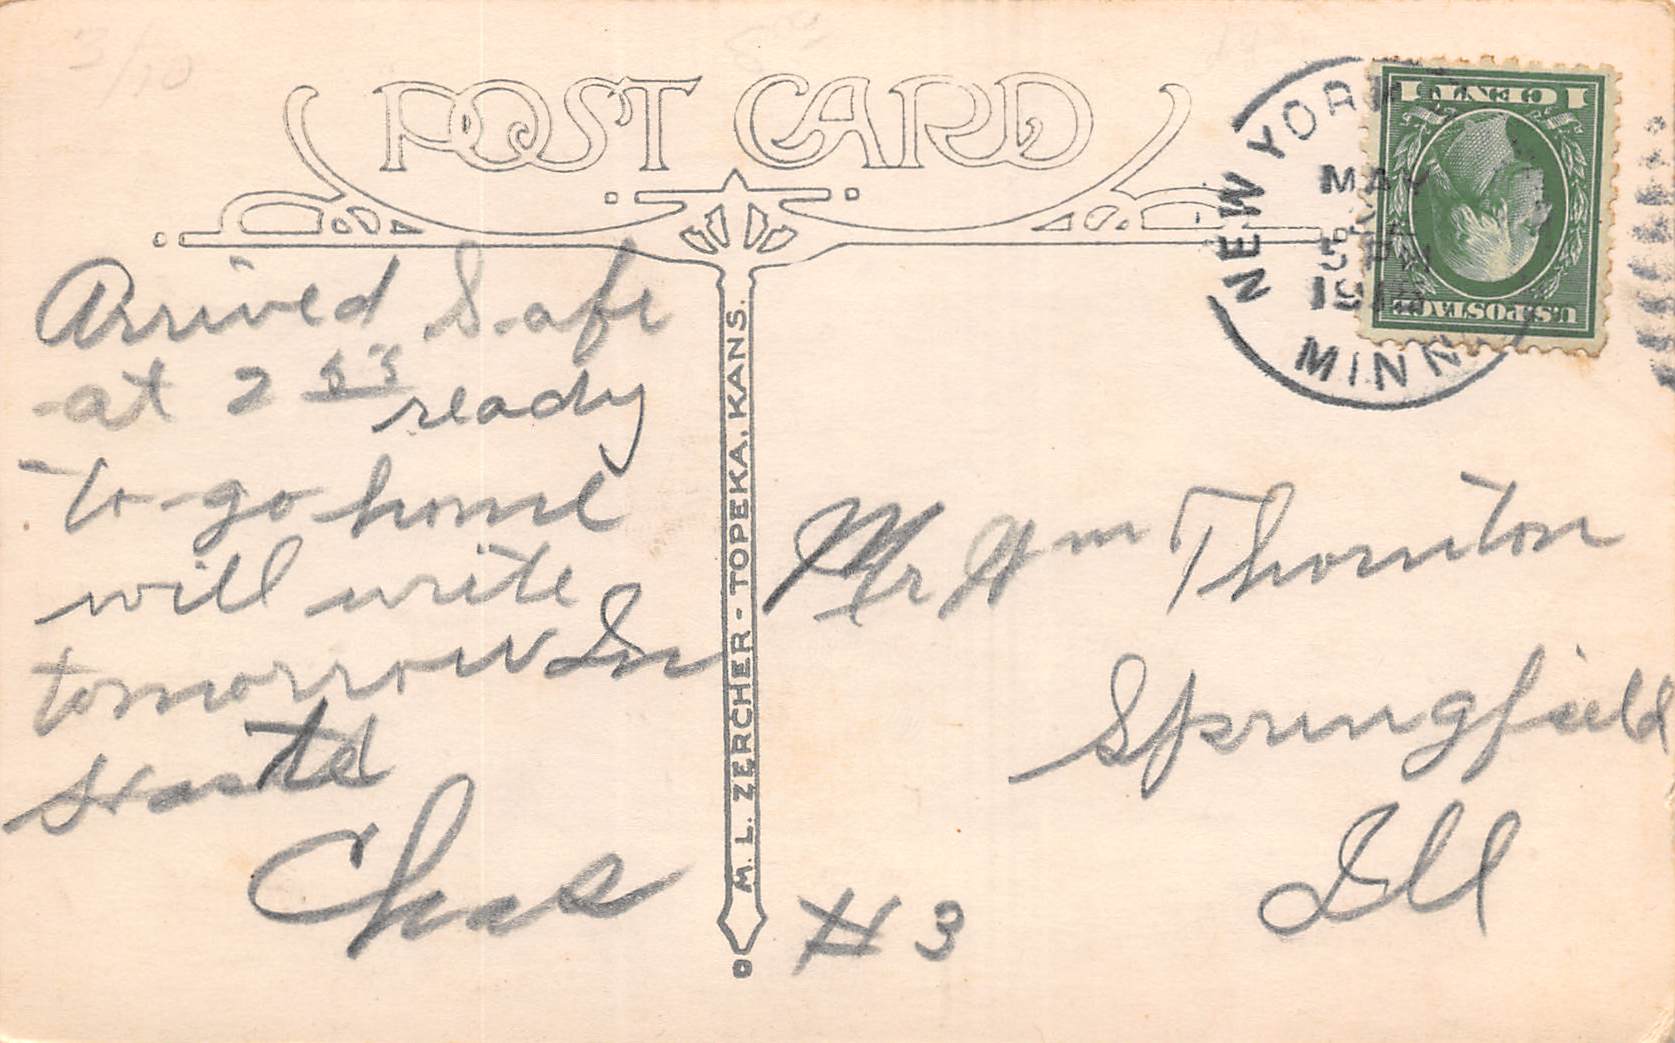 POST CARD
Arrived Safe
at 2 55 ready
to go home
will write
tomorrow In
Haste
Chas
M. L. ZERCHER - TOPEKA, KANS.
NEW YORK
MAY
5
PM
MINN.
U.S. POSTAGE
1 CENT 1
Mr Wm Thornton
Springfield
Ill
# 3
3/10